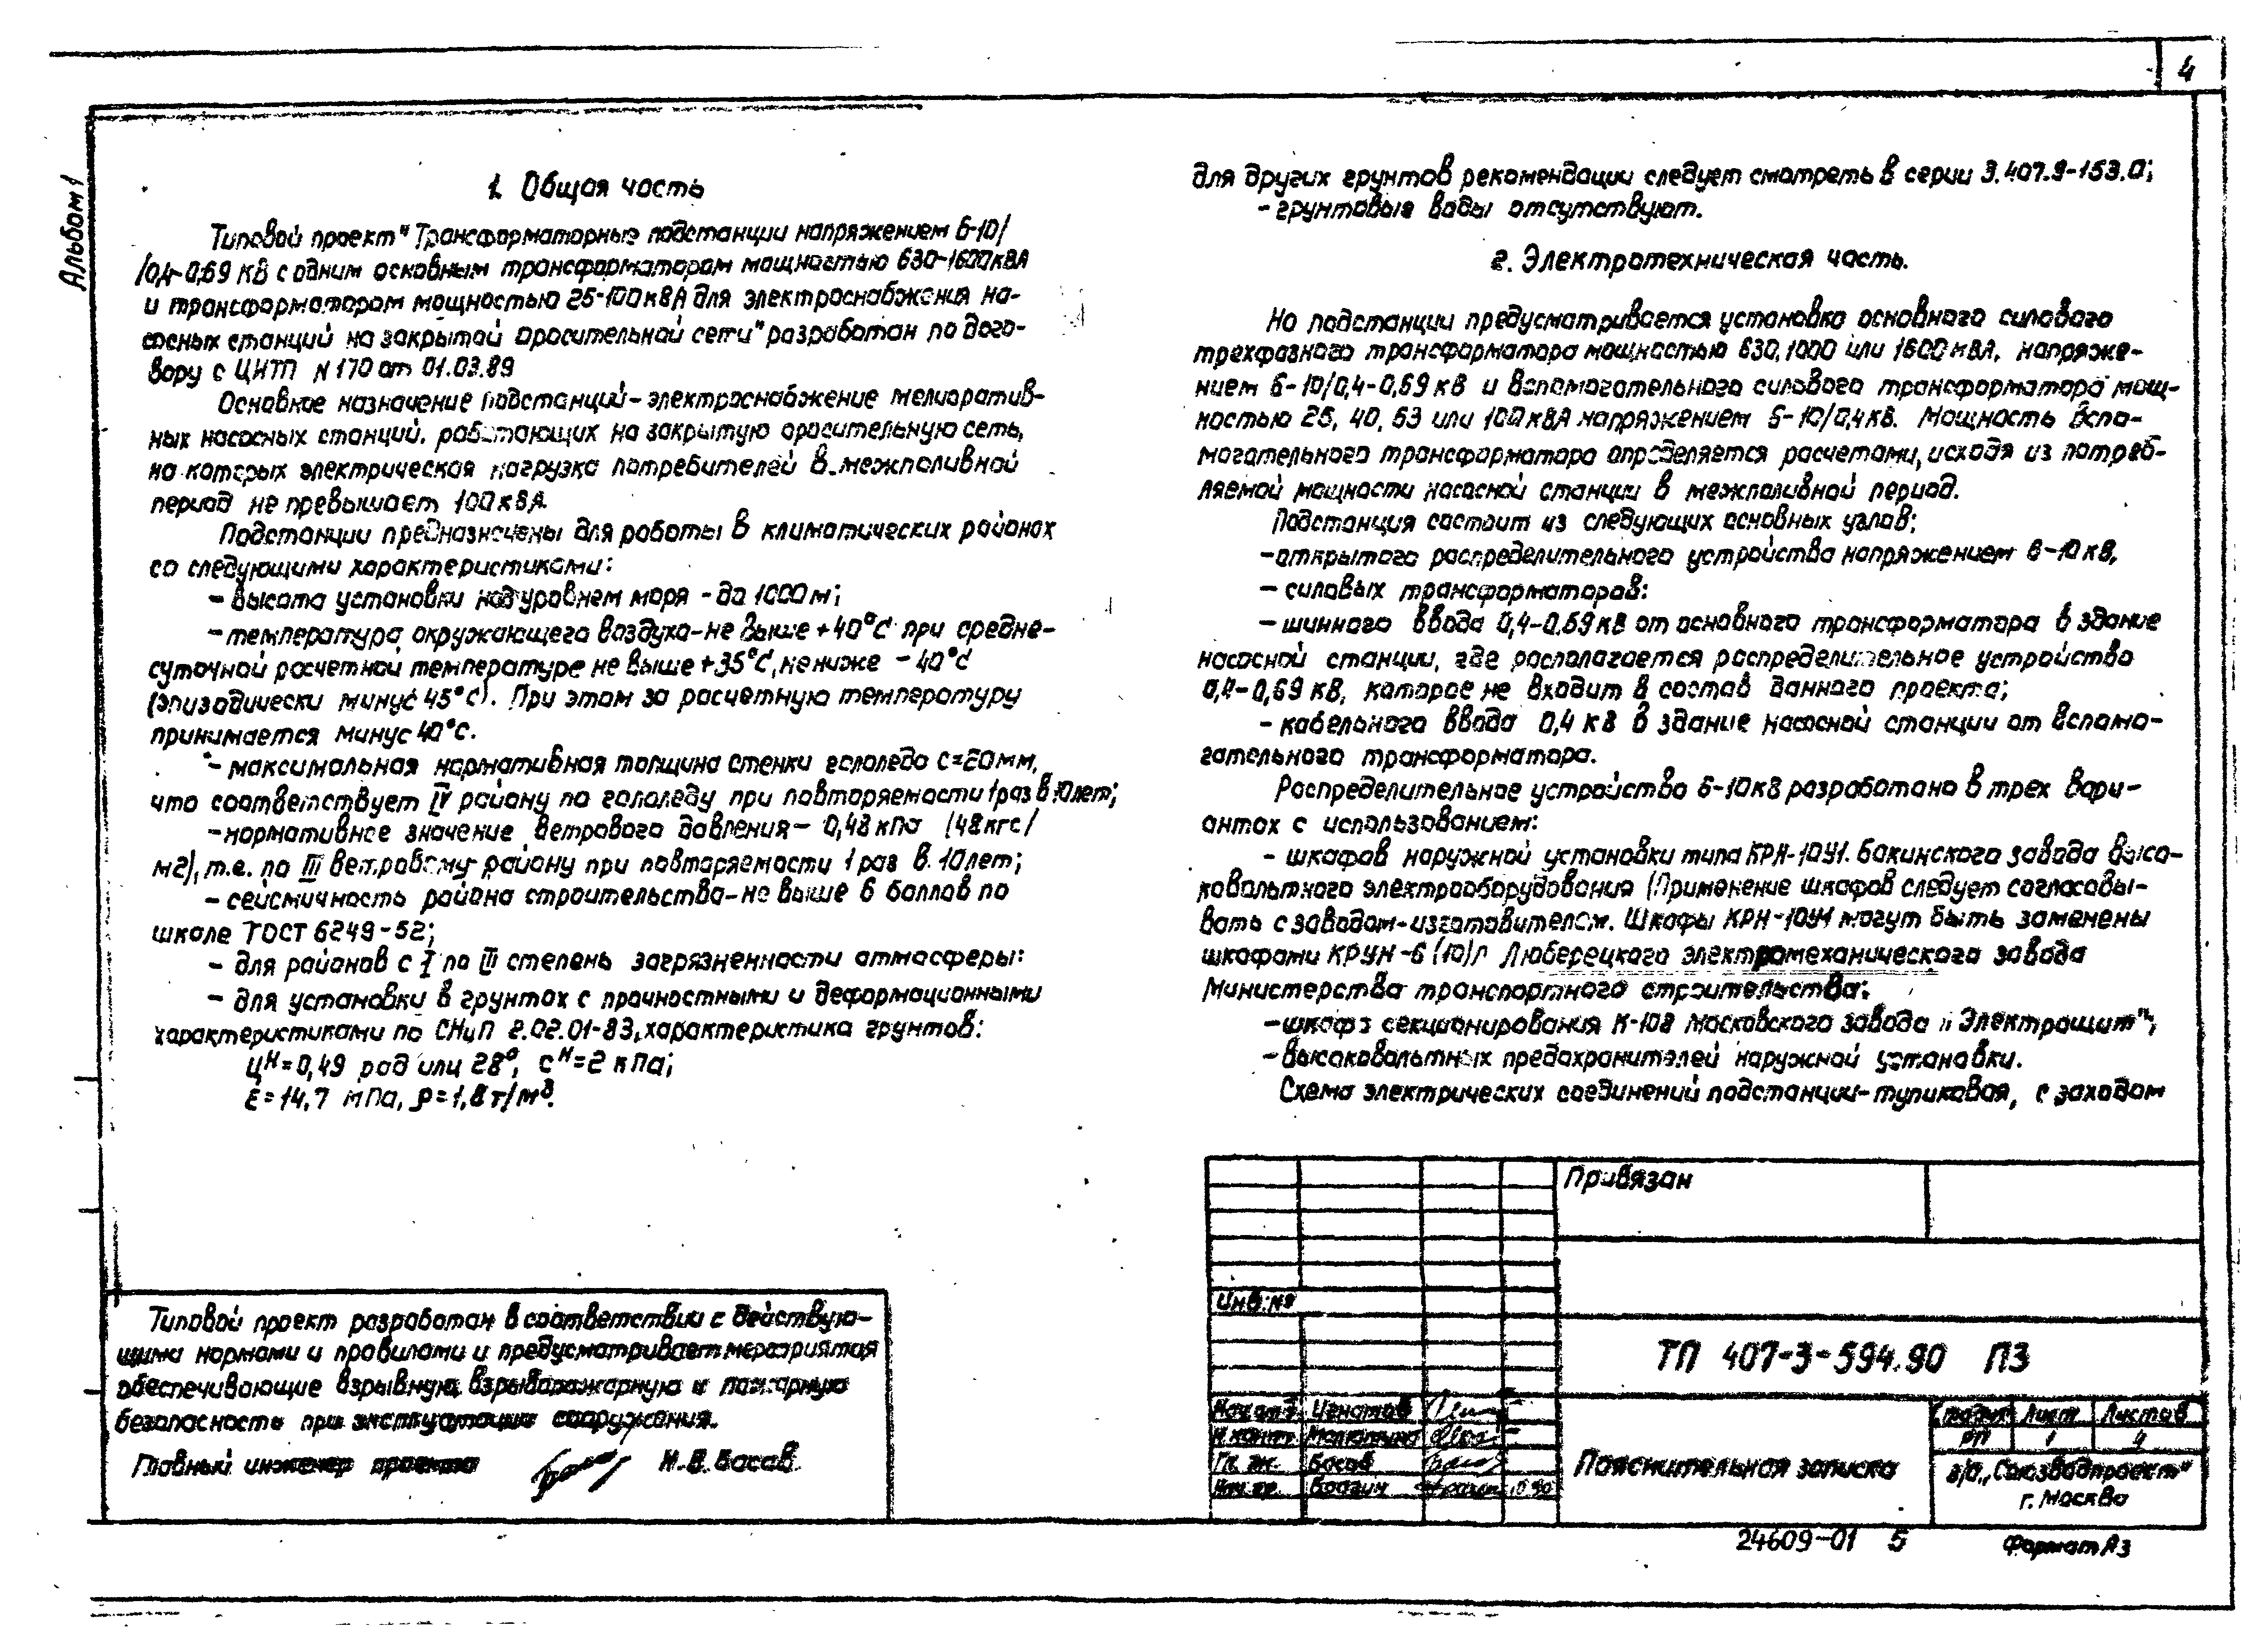 4
Альбом 1
1. Общая часть
Типовой проект "Трансформаторные подстанции напряжением 6-10/
/0,4-0,69 кВ с одним основным трансформатором мощностью 630-1600кВА
и трансформатором мощностью 25-100кВА для электроснабжения на-
сосных станций на закрытой оросительной сети" разработан по дого-
вору с ЦИТП N 170 от 01.03.89
Основное назначение подстанций - электроснабжение мелиоратив-
ных насосных станций, работающих на закрытую оросительную сеть,
на которых электрическая нагрузка потребителей в межполивной
период не превышает 100кВА.
Подстанции предназначены для работы в климатических районах
со следующими характеристиками:
- высота установки над уровнем моря - до 1000м;
- температура окружающего воздуха - не выше +40°С при средне-
суточной расчетной температуре не выше +35°С, не ниже -40°С
(эпизодически минус 45°С). При этом за расчетную температуру
принимается минус 40°С.
- максимальная нормативная толщина стенки гололеда с=20мм,
что соответствует IV району по гололеду при повторяемости 1 раз в 10 лет;
- нормативное значение ветрового давления - 0,48 кПа (48кгс/
м2), т.е. по III ветровому району при повторяемости 1 раз в 10 лет;
- сейсмичность района строительства - не выше 6 баллов по
шкале ГОСТ 6249-52;
- для районов с I по III степень загрязненности атмосферы:
- для установки в грунтах с прочностными и деформационными
характеристиками по СНиП 2.02.01-83, характеристика грунтов:
Цн=0,49 рад или 28°, Сн=2 кПа;
Е=14,7 мПа, ρ=1,8 т/м3.
для других грунтов рекомендации следует смотреть в серии 3.407.9-153.0;
- грунтовые воды отсутствуют.
2. Электротехническая часть.
На подстанции предусматривается установка основного силового
трехфазного трансформатора мощностью 630, 1000 или 1600кВА, напряже-
нием 6-10/0,4-0,69 кВ и вспомогательного силового трансформатора мощ-
ностью 25, 40, 63 или 100кВА напряжением 6-10/0,4кВ. Мощность вспо-
могательного трансформатора определяется расчетами, исходя из потреб-
ляемой мощности насосной станции в межполивной период.
Подстанция состоит из следующих основных узлов:
- открытого распределительного устройства напряжением 6-10кВ,
- силовых трансформаторов:
- шинного ввода 0,4-0,69кВ от основного трансформатора в здание
насосной станции, где располагается распределительное устройство
0,4-0,69 кВ, которое не входит в состав данного проекта;
- кабельного ввода 0,4 кВ в здание насосной станции от вспомо-
гательного трансформатора.
Распределительное устройство 6-10кВ разработано в трех вари-
антах с использованием:
- шкафов наружной установки типа КРН-10У1 Бакинского завода высо-
ковольтного электрооборудования (Применение шкафов следует согласовы-
вать с заводом-изготовителем. Шкафы КРН-10У1 могут быть заменены
шкафами КРУН-6(10)Л Люберецкого электромеханического завода
Министерства транспортного строительства:
- шкафа секционирования К-108 Московского завода „Электрощит";
- высоковольтных предохранителей наружной установки.
Схема электрических соединений подстанции - тупиковая, с заходом
Типовой проект разработан в соответствии с действую-
щими нормами и правилами и предусматривает мероприятия
обеспечивающие взрывную, взрывопожарную и пожарную
безопасность при эксплуатации сооружения.
Главный инженер проекта И.В. Басов
Привязан
Инв.№
ТП 407-3-594.90 ПЗ
Нач.отд. Игнатов
Н.контр. Малютина
Басов
Брагин
Пояснительная записка
Стадия Лист Листов
РП 1 4
в/о „Союзводпроект"
г. Москва
24609-01 5
Формат А3